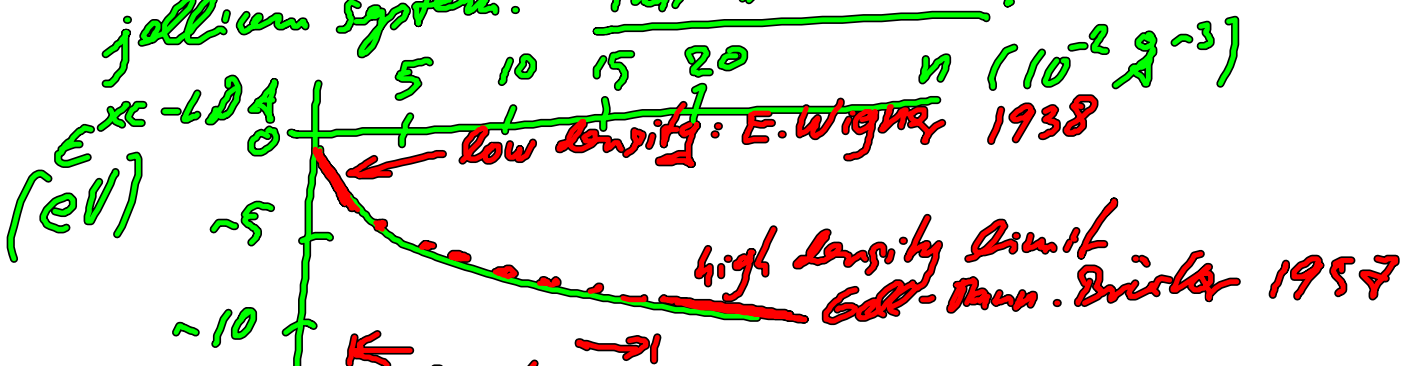 jellium system.
5 10 15 20 n (10^-2 Å^-3)
ϵ^xc-LDA
(eV)
0
low density: E. Wigner 1938
-5
high density limit
Gell-Mann. Brückner 1957
-10